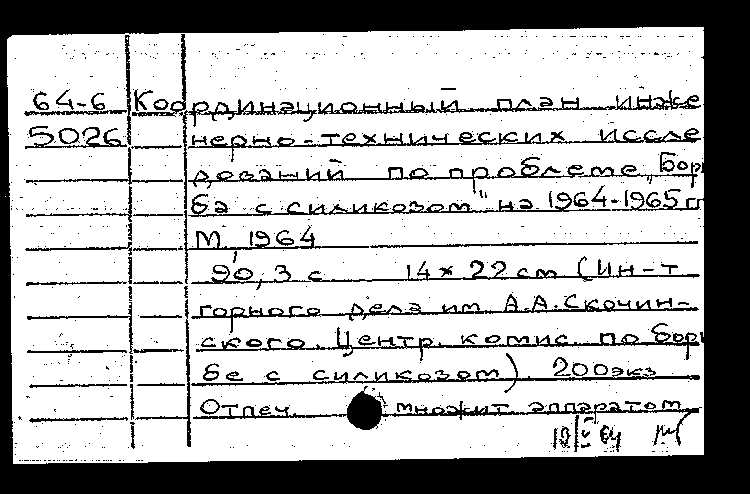 64-6 Координационный план инже
5026 нерно-технических иссле
дований по проблеме „Борь
ба с силикозом" на 1964-1965 гг
М, 1964
90, 3 с 14×22 см (Ин-т
горного дела им. А.А.Скочин-
ского. Центр. комис. по борь
бе с силикозом). 200экз
Отпеч. множит аппаратом
64